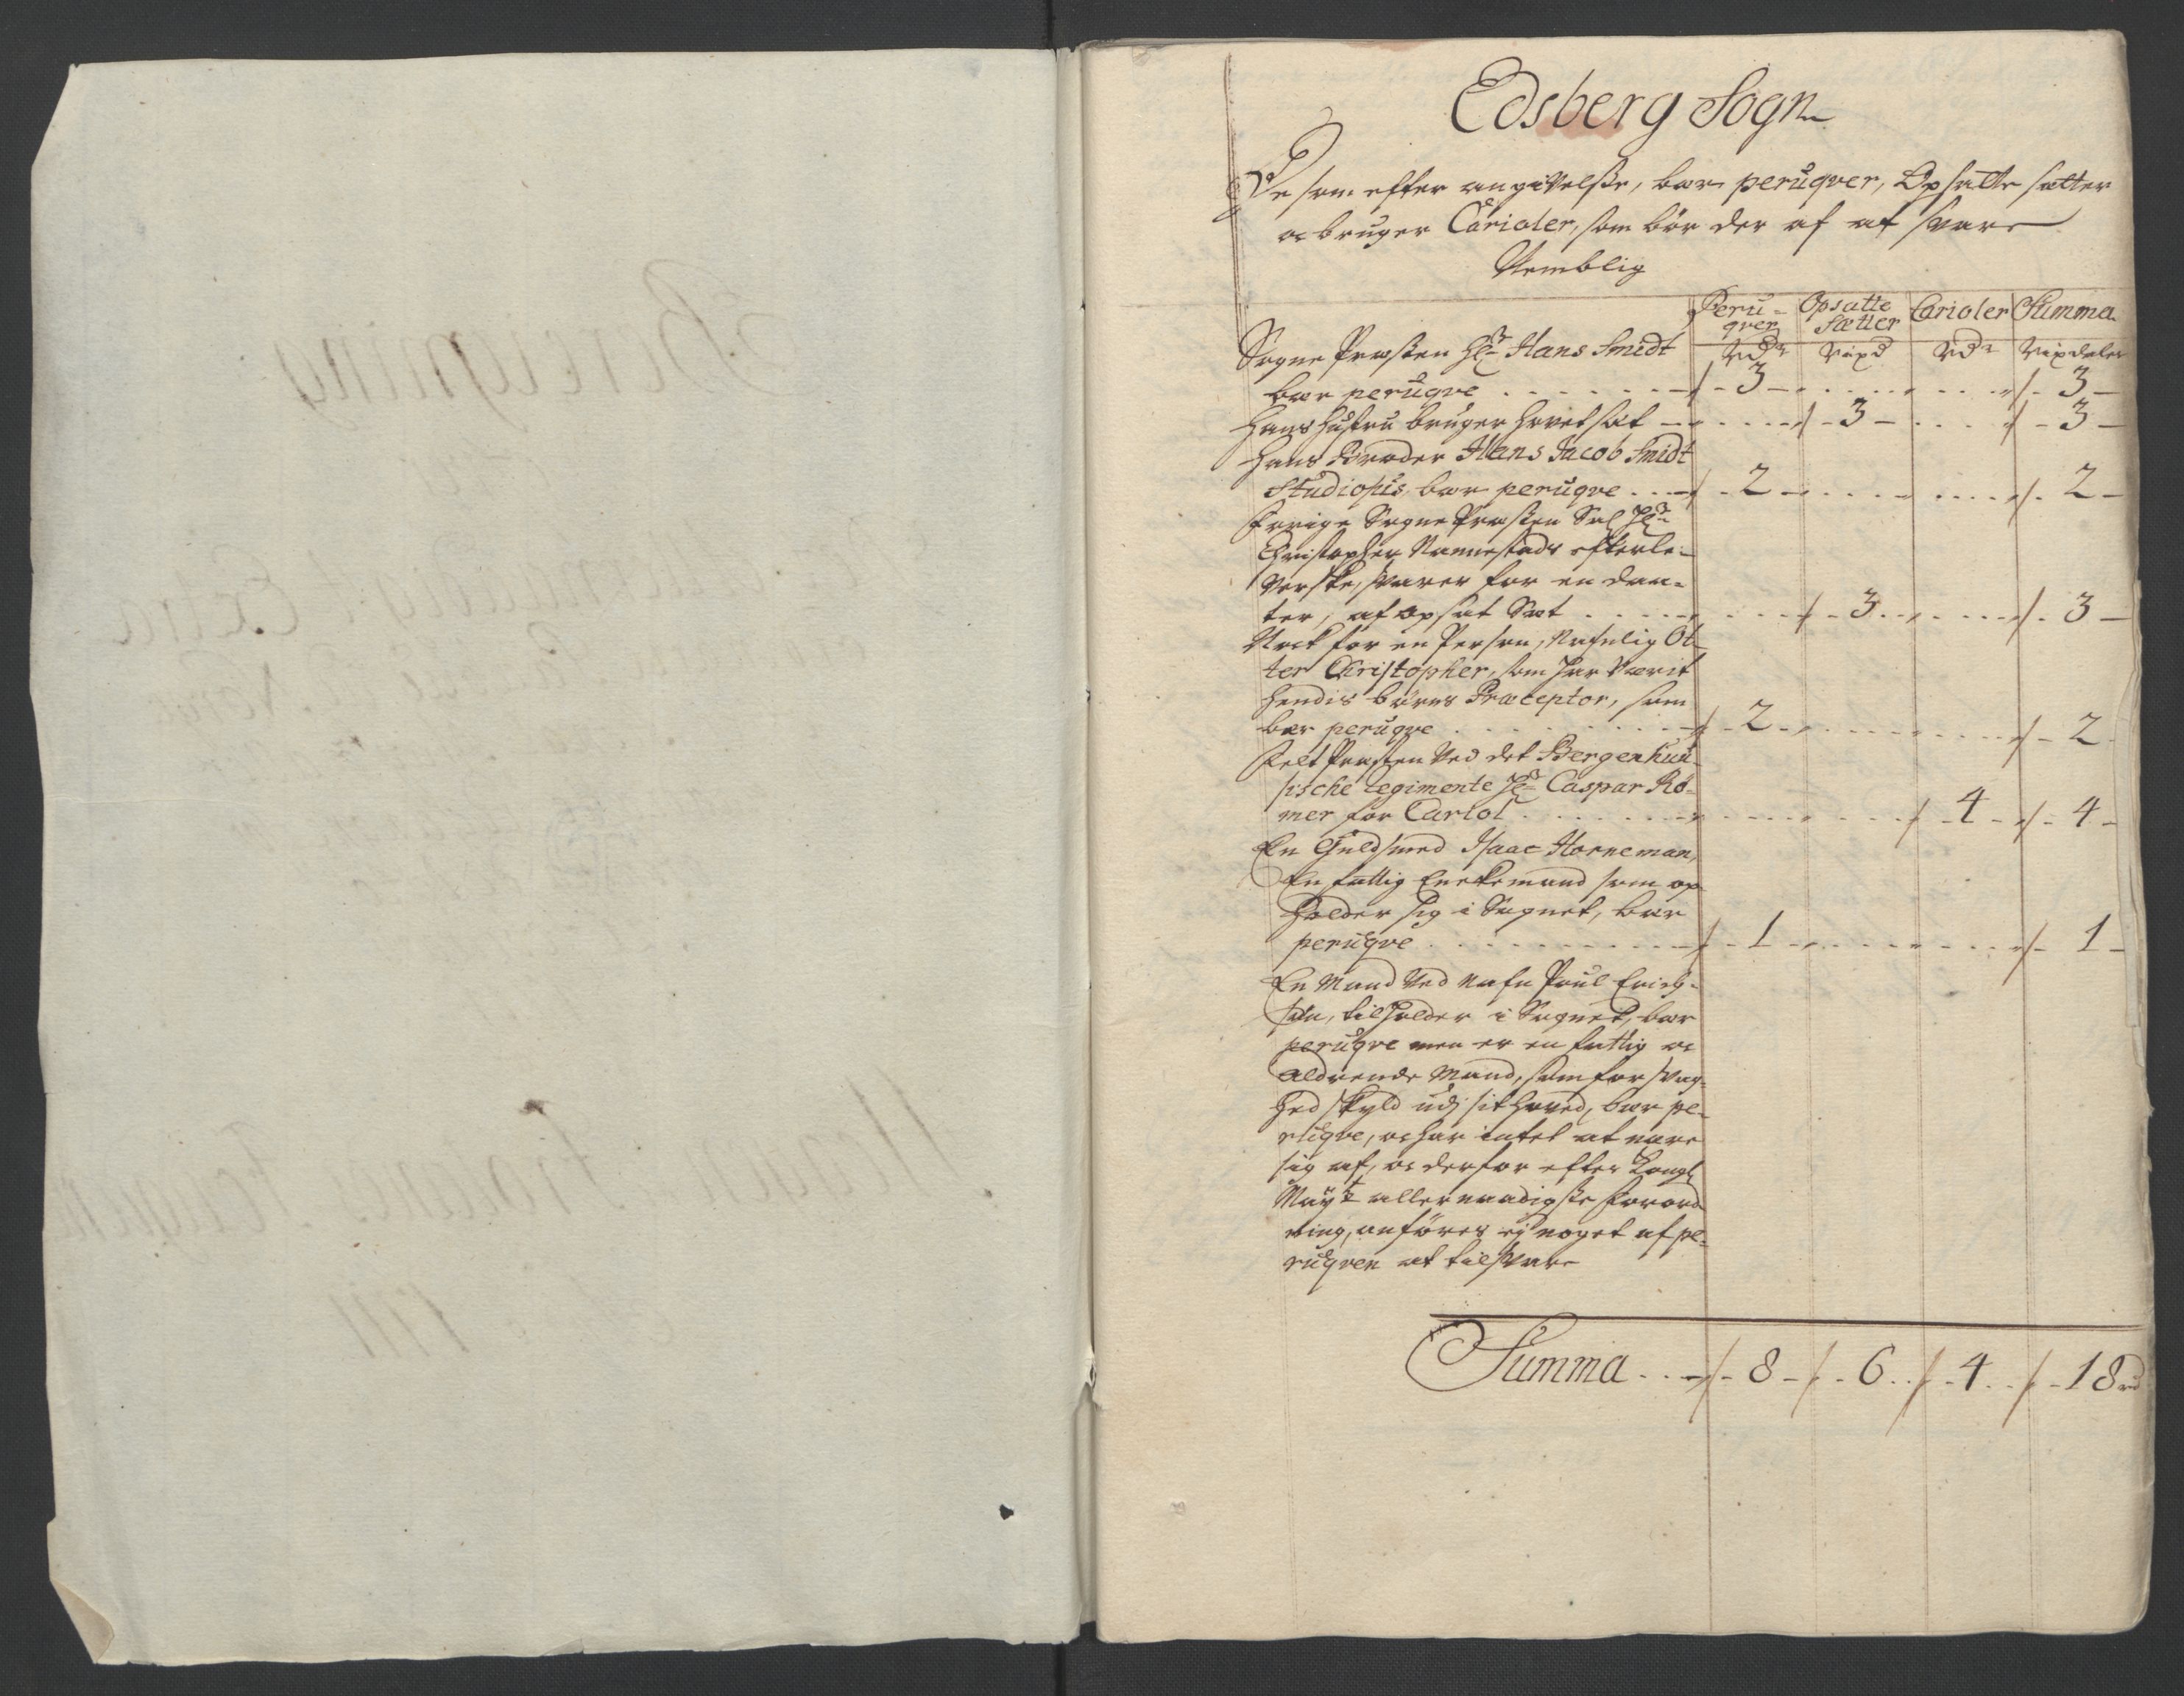 Edsberg Sogn
De som effter angivelsse, bær peruqver, Opsatte sætter
oc bruger Carioler, som bør der af at svare
Nemblig
Peru- Opsatte Carioler Summa
qver Sætter
Rdr Rixd Rdr Rixdaler
Sogne Præsten Hr Hans Smidt
bær peruqve 3 3
Hans Hustru bruger Hovetsæt 3 3
Hans Broder Hans Jacob Smidt
Studiosus, bær peruqve 2 2
forige Sogne Præsten Sal Hr
Christopher Nannestads effterle-
verske, svarer for en daat-
ter, af opsat Sæt 3 3
Nock for en Person, Nafnlig Ot-
ter Christopher, som har værit
hendis børns Præceptor, som
bær peruqve 2 2
Felt Præsten ved det Bergenhuu-
sische regimente Hr Caspar Rø-
mer for Cariol 4 4
En Guldsmed Isaac Horneman,
En fattig Enckemand som op-
holder sig i Sognet, bær
peruqve 1 1
En Mand ved Nafn Poul Erich-
søn, tilholder i Sognet, bær
peruqve men er en fattig oc
aldrende Mand, som for svag-
hed skyld udj sit hoved, bær pe-
ruqve, oc har intet at nære
sig af, oc derfor effter Kongl
Mayts allernaadigste forord-
ning, anføres ej noget af pe-
ruqven at tilsvare
Summa 8 6 4 18 rd